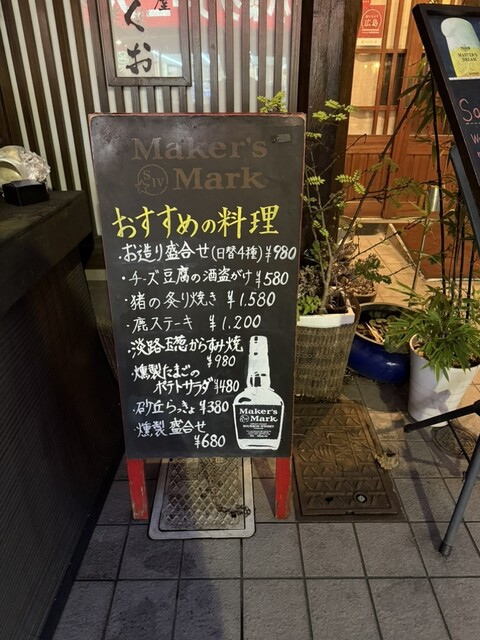 屋
くお
広島
MASTER'S DREAM
Maker's
SIV
Mark
おすすめの料理
・お造り盛合せ(日替4種)¥980
・チーズ豆腐の酒盗がけ¥580
・猪の炙り焼き ¥1.580
・鹿ステーキ ¥1.200
・淡路玉葱からすみ焼
¥980
・燻製たまごの
ポテトサラダ¥480
・砂丘らっきょ¥380
・燻製盛合せ
¥680
Maker's
Mark